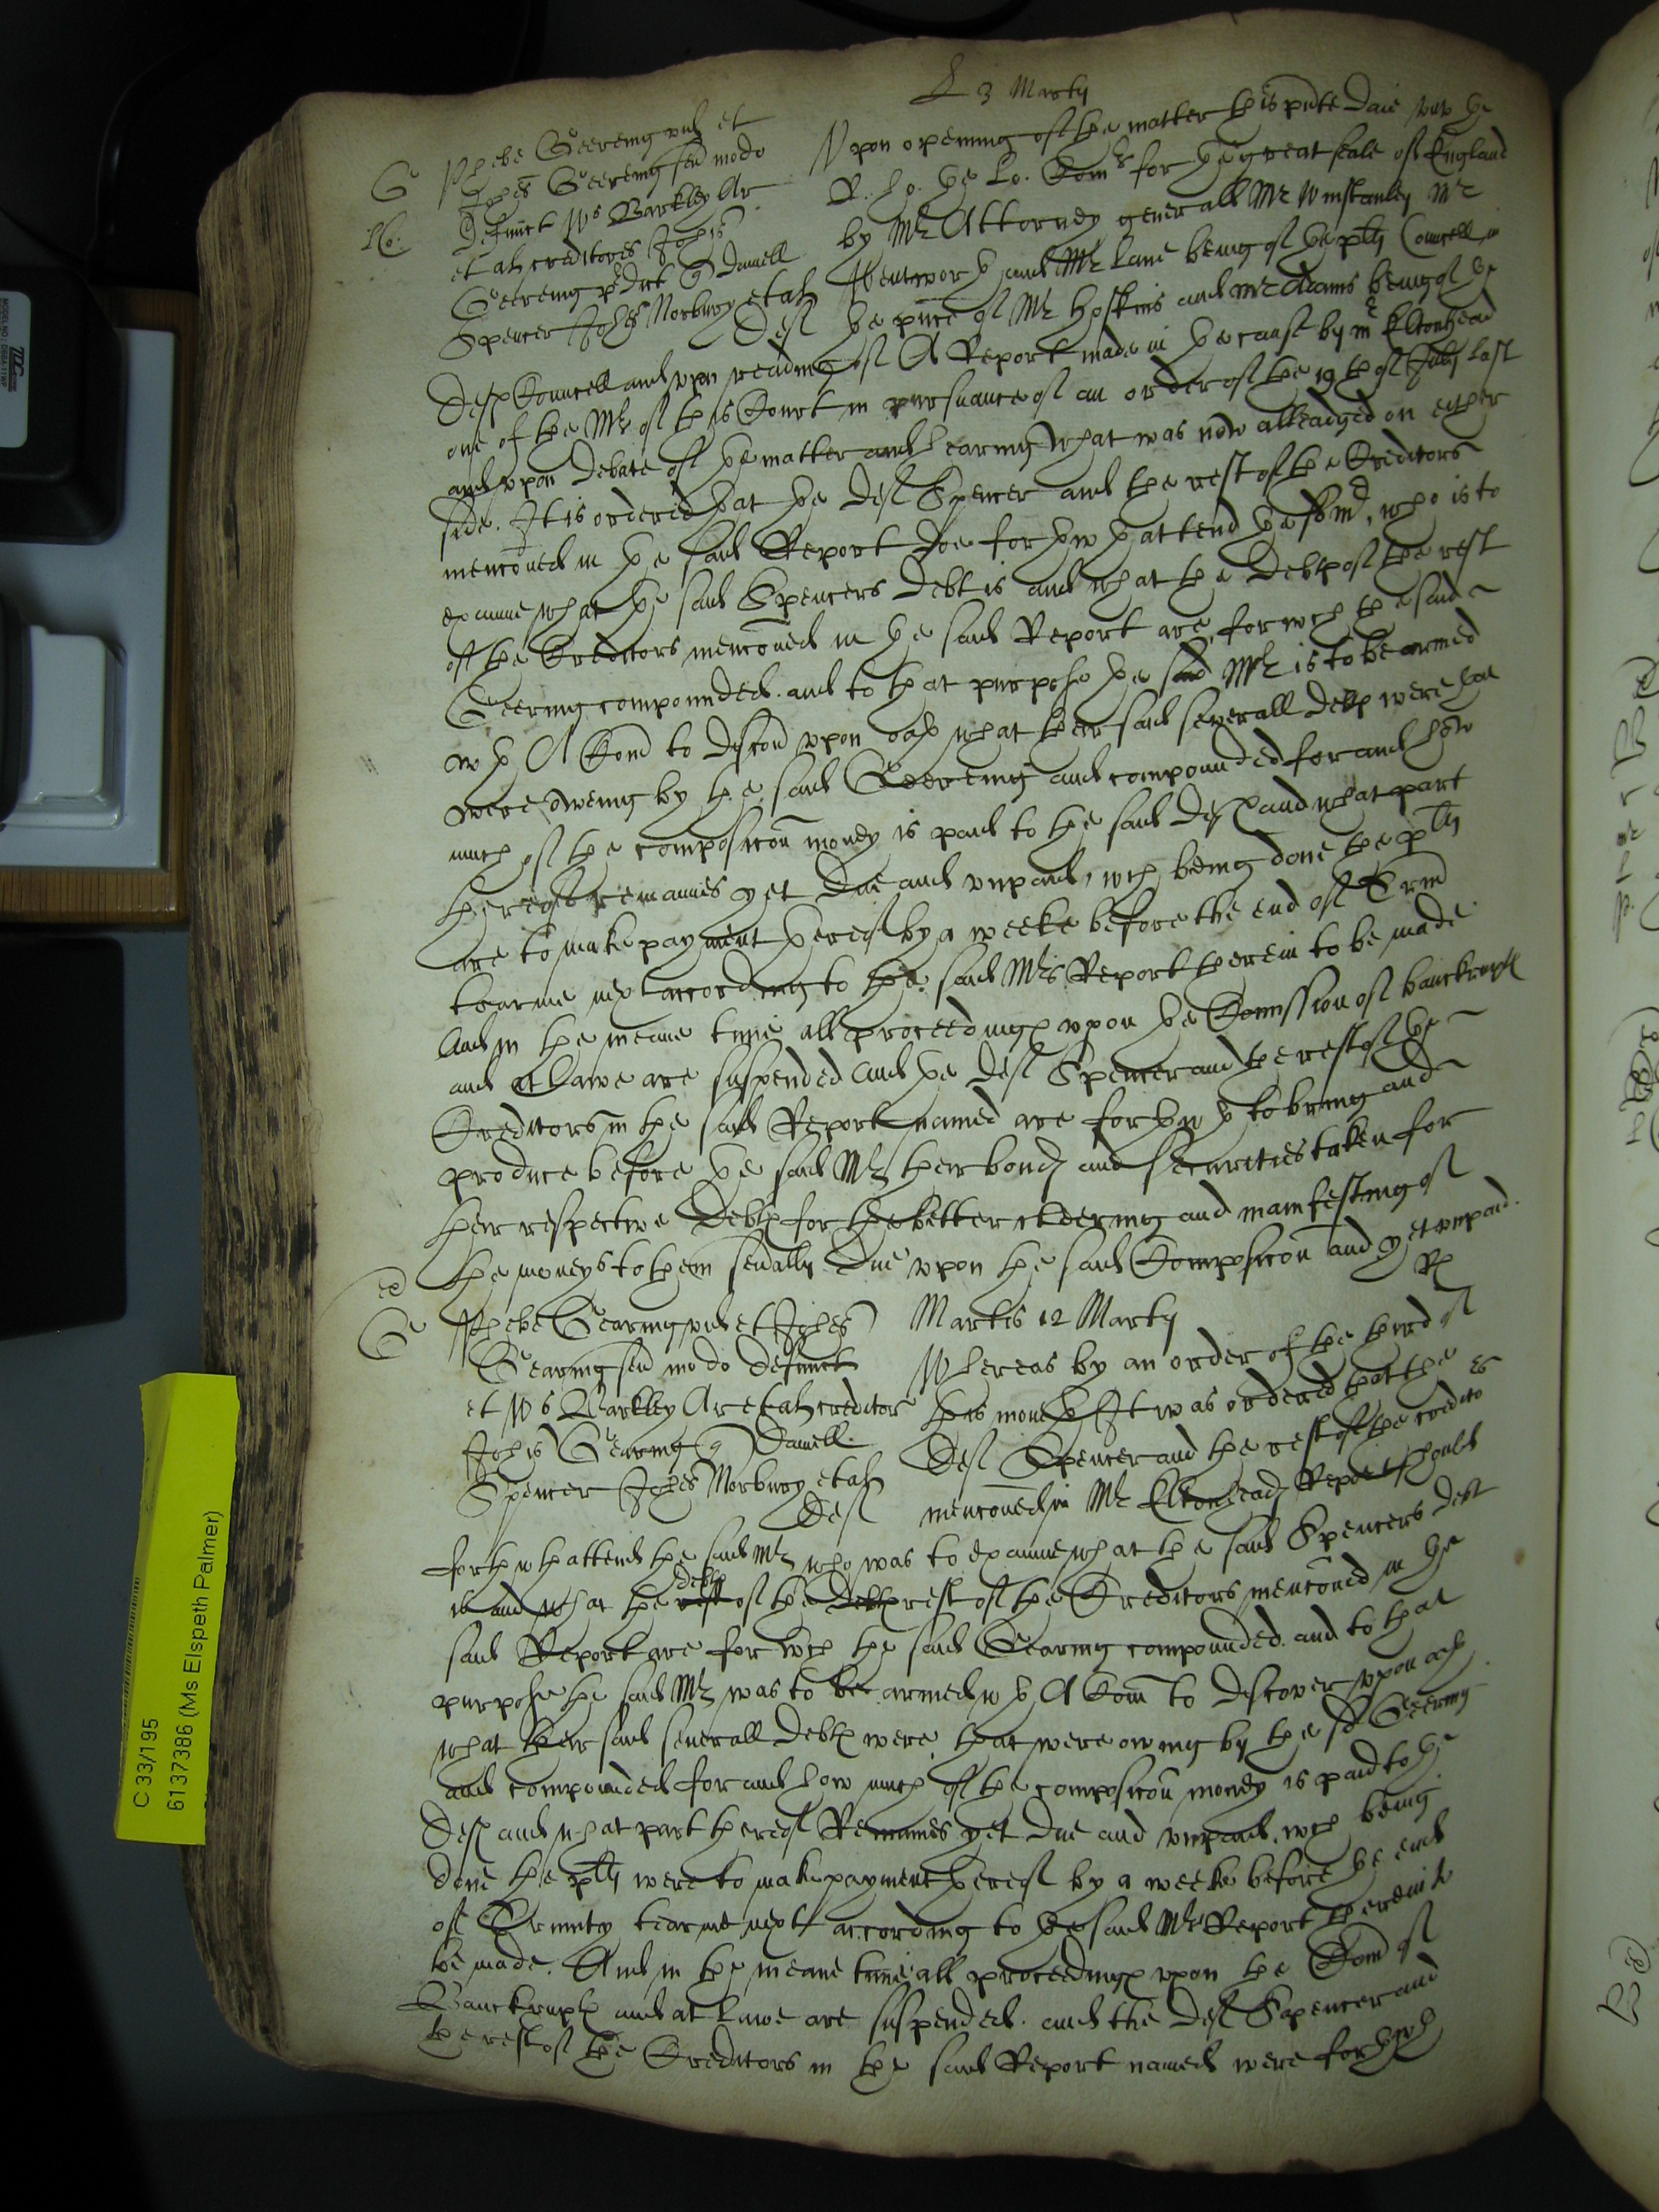 L 3 Martij
G Phebe Geereing vid et
Johes Geereing sen modo
Defunct Ws Barkley Ar
et al creditores Johis
Geereing pdict q Daniell
Spencer Johes Norbury et als
Deft
Vpon opening of the matter this pnte daie vnto the
R. ho. the Lo. Comrs for the great seale of England
by Mr Attorney generall Mr Winstanley Mr
Wentworth and Mr Lane being of the plts Councell in
the pnce of Mr Hoskins and Mr Adams being of the
Defts Councell and vpon reading of A Report made in the cause by Mr Eltonhead
one of the Mrs of this Court in pursuance of an order of the 19th of July last
and vpon Debate of the matter and hearing what was now alleadged on either
side. It is ordered that the Deft Spencer and the rest of the Creditors
menconed in the said Report doe forthwth attend the sd Mr, who is to
examine what the said Spencers Debt is and what the Debts of the rest
of the Creditors menconed in the said Report are, for wch the said
Geering compounded. and to that purpose the said Mr is to be armed
wth A Com to discou vpon oath what their said severall debts were that
were oweing by the said Geereing and compounded for and how
much of the composicon money is paid to the said Defts and what part
thereof remaines yet due and vnpaid, wch being done the plts
are to make payment thereof by a weeke before the end of Trin
tearme next according to the said Mrs Report therein to be made
And in the meane time all proceedings vpon the Comission of banckrupts
and at Lawe are suspended And the Deft Spencer and the rest of the
Creditors in the said Report named are forthwth to bring and
produce before the said Mr their bonds and securities taken for
their respective Debts for the better cleering and manifesting of
the moneys to them seually due vpon the said Composicon and yet vnpaid.
Rx
G Phebe Gearing vid et Johes
Gearing sen modo defunct
et Ws Barkley Ar et als creditor
Johis Gearing q Daniell
Spencer Johes Norbury et als
Deft
Martis 12 Martij
Whereas by an order of the third of
this month It was ordered that the
Deft Spencer and the rest of the creditors
menconed in Mr Eltonheads Report should
forthwth attend the said Mr who was to examine what the said Spencers debt
is and what the debts of the rest of the Creditors menconed in the
said Report are for wch the said Gearing compounded. and to that
purpose the said Mr was to be armed wth A Com to discover vpon oath
what their said seuerall debts were, that were oweing by the sd Geering
and compounded for and how much of the composicon money is paid to the
Defts and what part thereof Remaines yet due and vnpaid. wch being
done the plts were to make payment thereof by a weeke before the end
of Trinity tearme next according to the said Mrs Report therein to
be made. And in the meane time all proceedings vpon the Com of
Banckrupts and at Lawe are suspended. and the Deft Spencer and
the rest of the Creditors in the said Report named were forthwth
C 33/195
6137386 (Ms Elspeth Palmer)